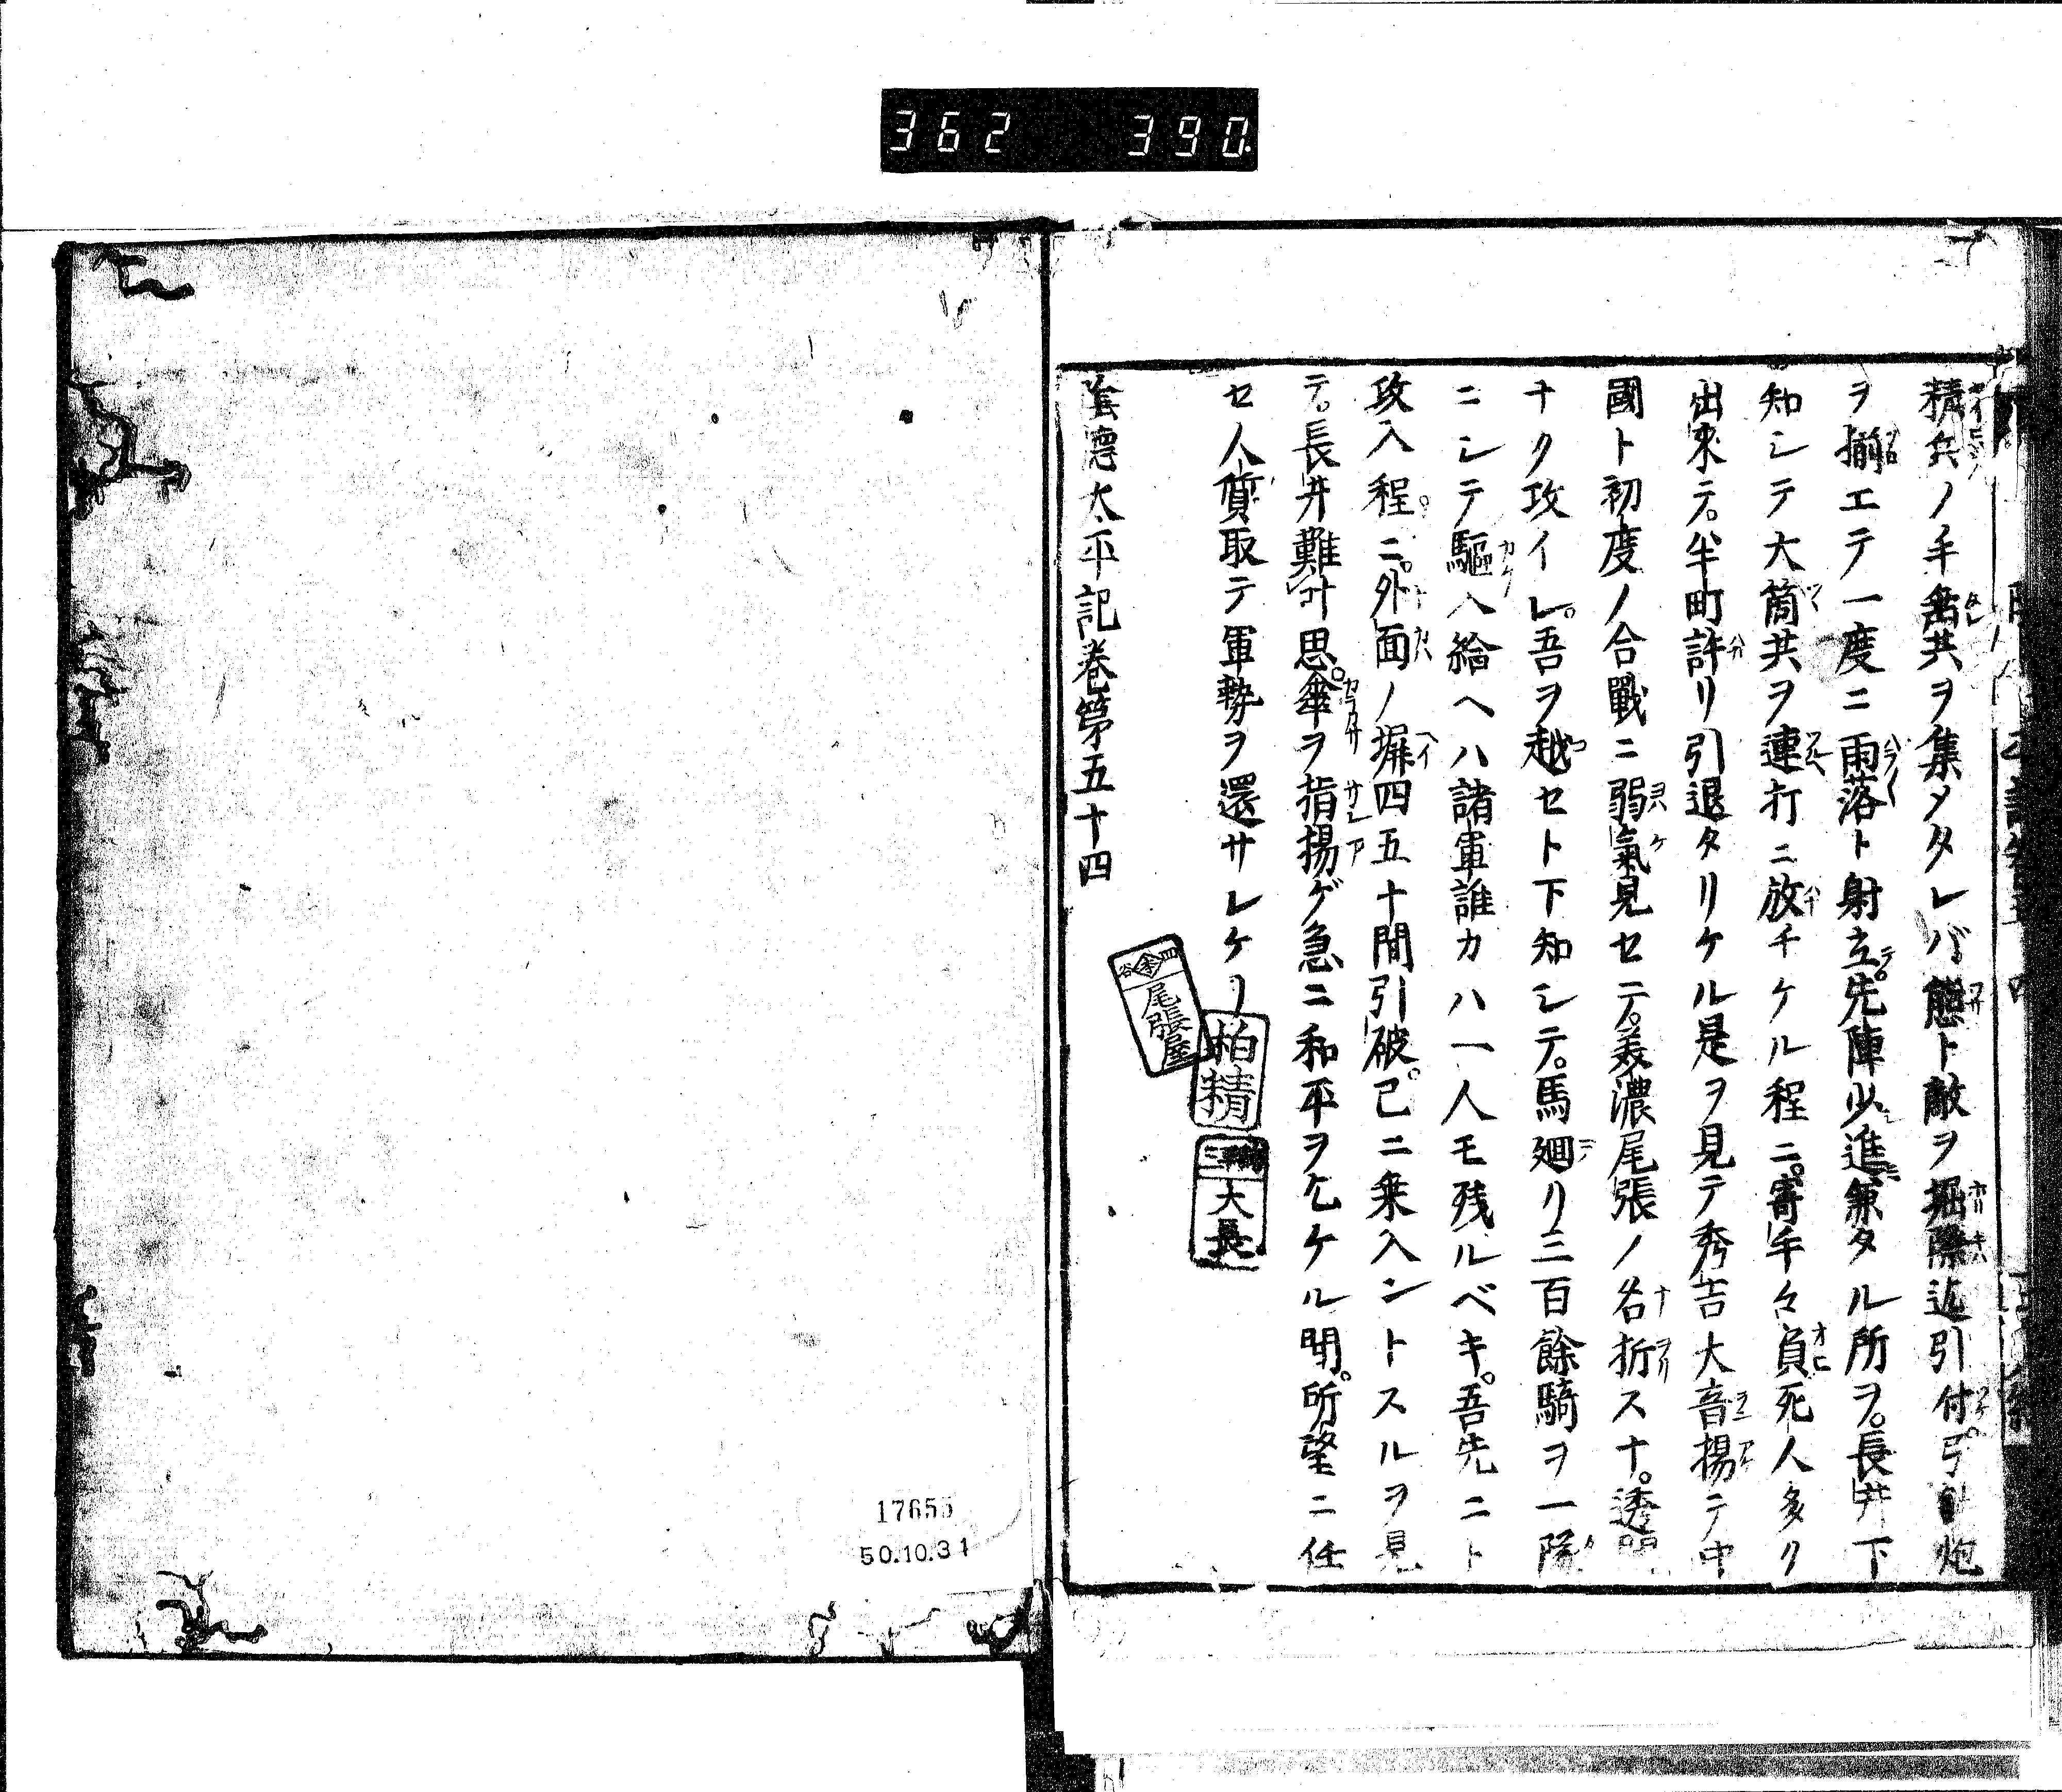 362 390
精兵ノ手垂共ヲ集メタレバ態ト敵ヲ堀際近引付弓炮
ヲ揃エテ一度ニ雨落ト射立先陣少進兼タル所ヲ長井下
知シテ大筒共ヲ連打ニ放チケル程ニ寄手々負死人多ク
出來テ半町許リ引退タリケル是ヲ見テ秀吉大音揚テ中
國ト初度ノ合戰ニ弱氣見セテ美濃尾張ノ名折スナ透間
ナク攻イレ吾ヲ越セト下知シテ馬廻リ三百餘騎ヲ一隊
ニシテ驅入給ヘハ諸軍誰カハ一人モ残ルベキ吾先ニト
攻入程ニ外面ノ塀四五十間引破已ニ乗入ントスルヲ見
テ長井難叶思傘ヲ指揚ゲ急ニ和平ヲ乞ケル間所望ニ任
セ人質取テ軍勢ヲ還サレケリ
陰德太平記卷第五十四
四谷
尾張屋
柏精
大長
17655
50.10.31